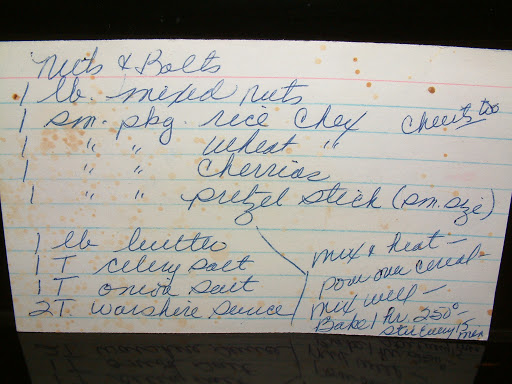 Nuts & Bolts
1 lb. mixed nuts
1 sm. pkg. rice chex cheerts too
1 " " wheat "
1 " " cherrios
1 " " pretzel stick (sm. size)
1 lb butter
1 T celery salt
1 T onion salt
2T. warshire sauce
mix & heat -
pour over cereal -
mix well -
Bake 1 hr. 250° -
Stir every 15 min